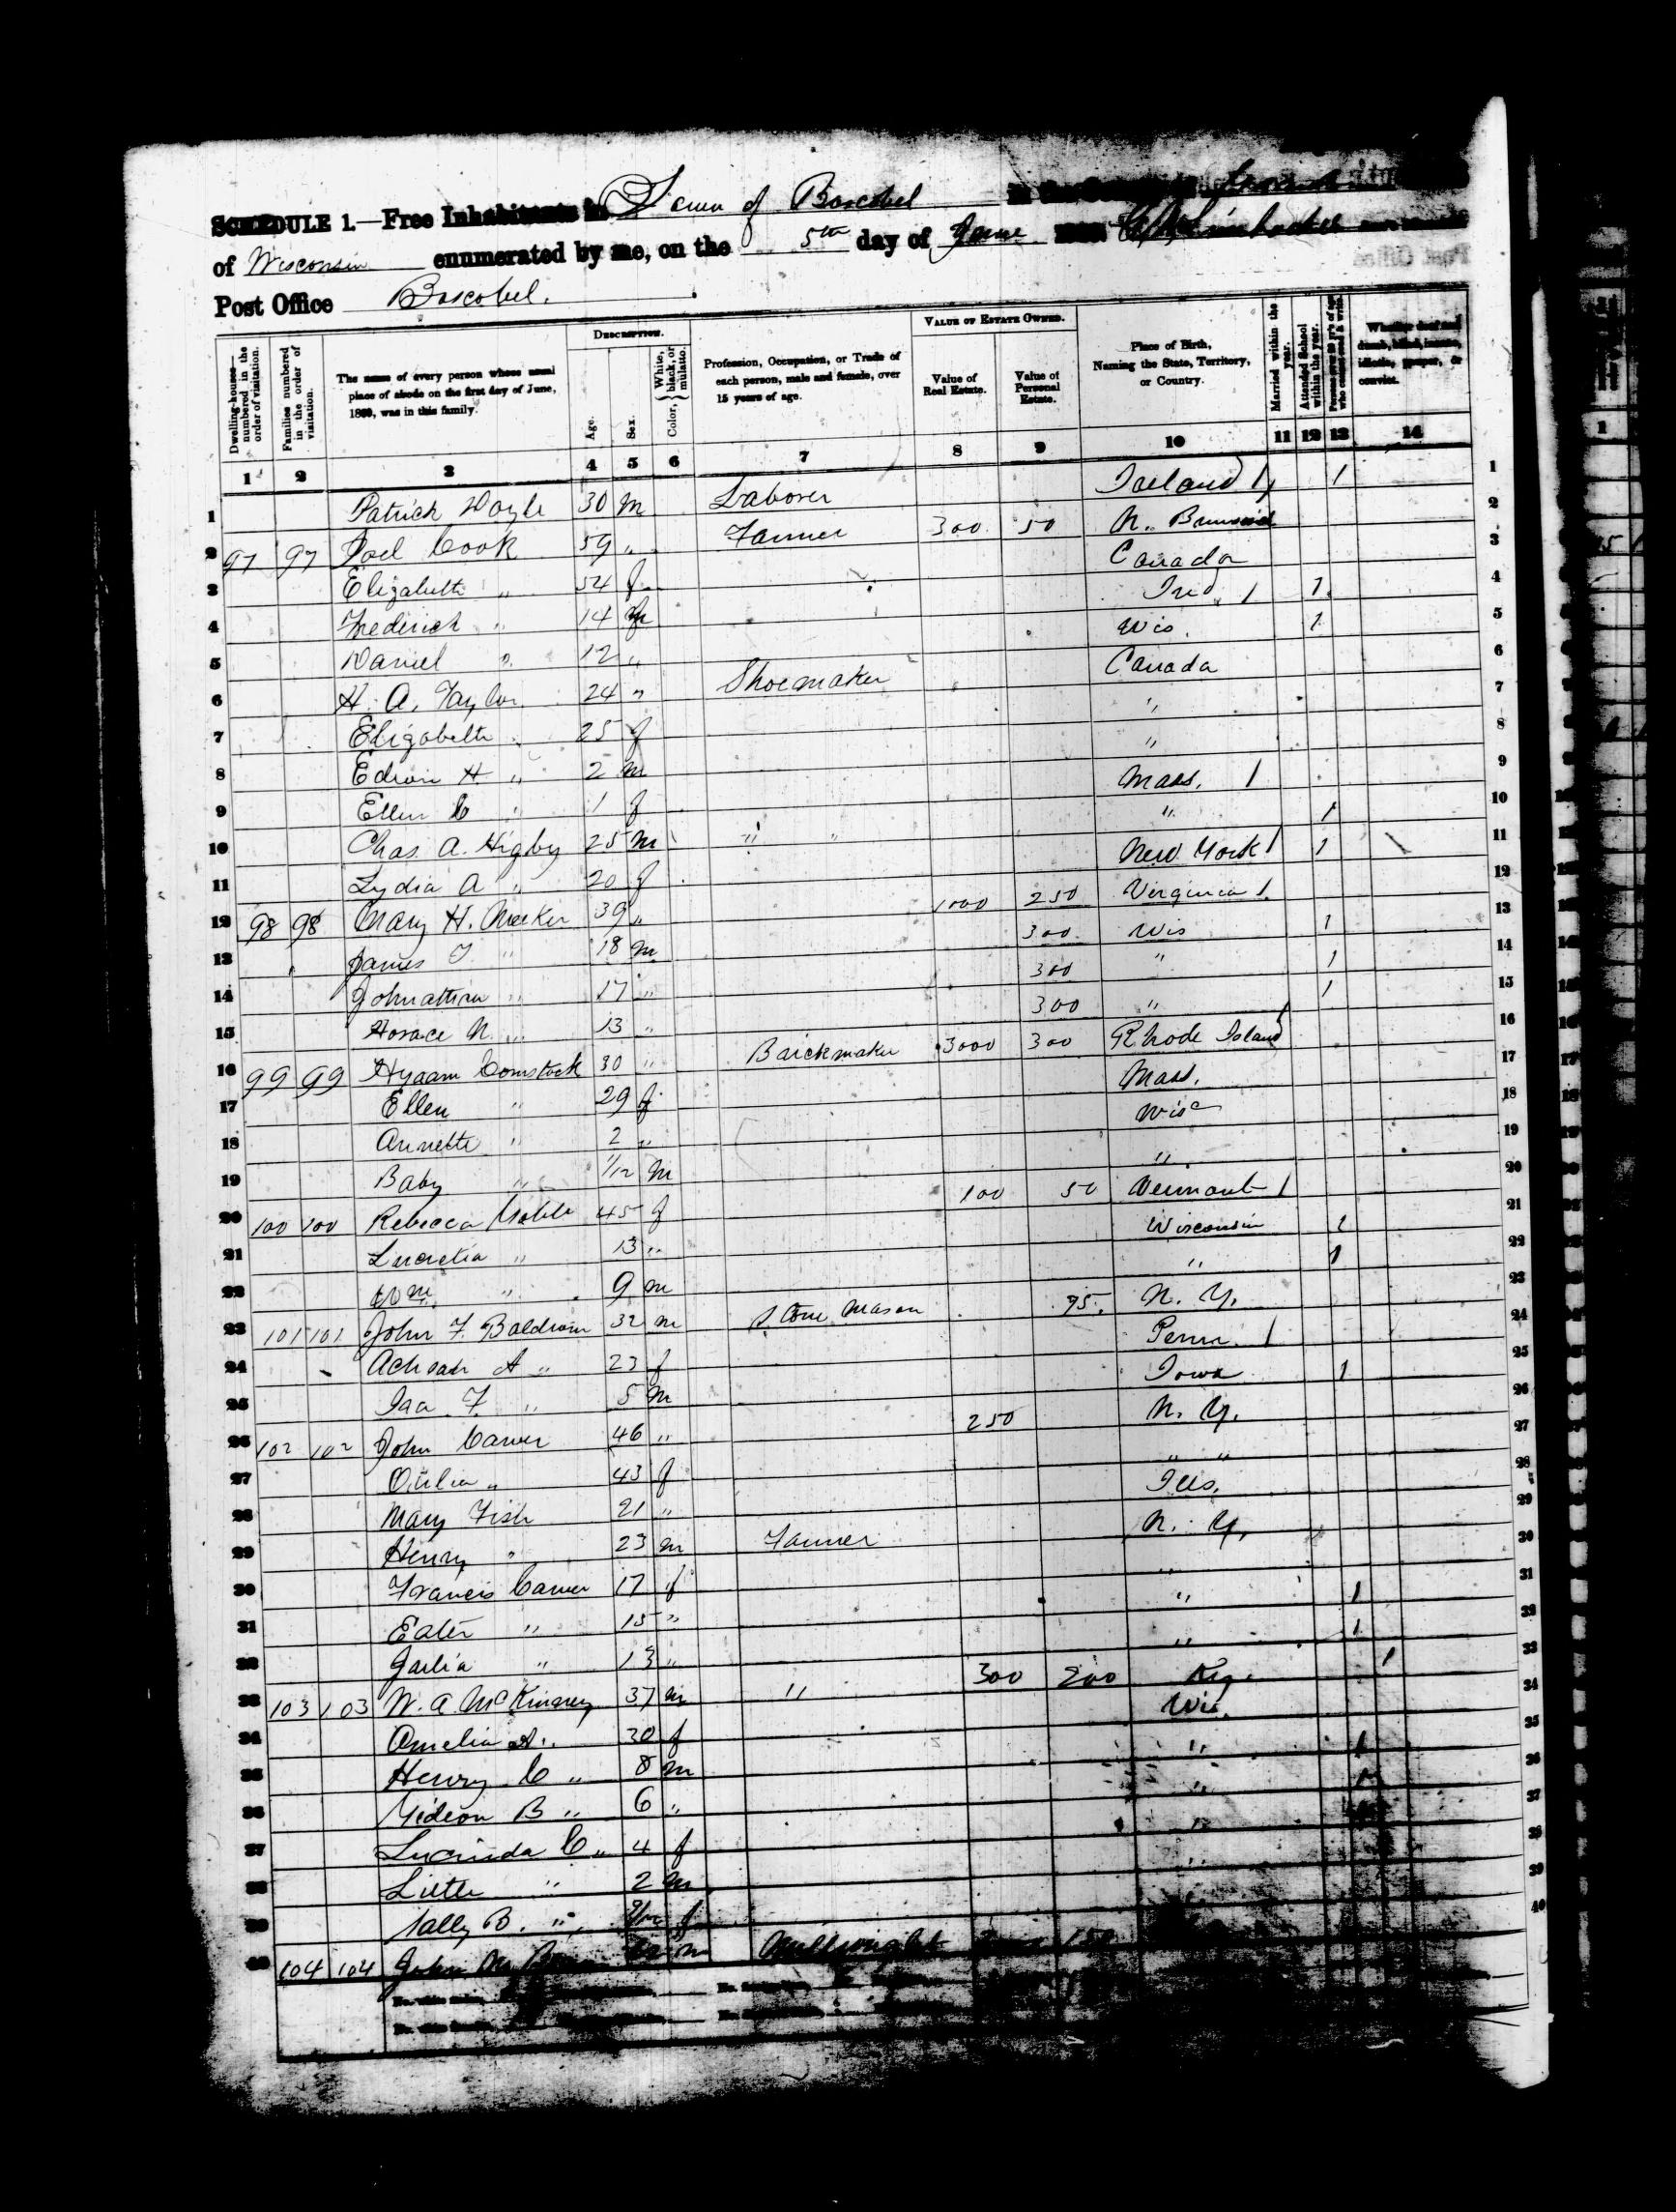 SCHEDULE 1.—Free Inhabitants in Town of Boscobel in the County
of Wisconsin enumerated by me, on the 5th day of June
Post Office Boscobel.
Dwelling-houses—numbered in the order of visitation.
Families numbered in the order of visitation.
The name of every person whose usual place of abode on the first day of June, 1860, was in this family.
DESCRIPTION.
Age.
Sex.
Color, White, black, or mulatto.
Profession, Occupation, or Trade of each person, male and female, over 15 years of age.
VALUE OF ESTATE OWNED.
Value of Real Estate.
Value of Personal Estate.
Place of Birth, Naming the State, Territory, or Country.
Married within the year.
Attended School within the year.
Persons over 20 y'rs of age who cannot read & write.
Whether deaf and dumb, blind, insane, idiotic, pauper, or convict.
1 2 3 4 5 6 7 8 9 10 11 12 13 14
1 Patrick Doyle 30 m Laborer Ireland / 1 1
2 97 97 Joel Cook 59 " Farmer 300 50 N. Brunswick 2
3 Elizabeth " 54 f Canada 3
4 Frederick " 14 m Ind. / 1 4
5 Daniel " 12 " Wis. 1 5
6 H. A. Taylor 24 " Shoemaker Canada 6
7 Elizabeth " 25 f " 7
8 Edwin H " 2 m " 8
9 Ellen C " 1 f Mass. / 9
10 Chas. A. Higby 25 m " " " 1 10
11 Lydia A " 20 f New York / 1 11
12 98 98 Mary H. Meeker 39 " 1000 250 Virginia / 12
13 James T " 18 m 300 Wis 1 13
14 Johnathan " 17 " 300 " 1 14
15 Horace N. " 13 " 300 " 1 15
16 99 99 Hyaam Comstock 30 " Brickmaker 3000 300 Rhode Island / 16
17 Ellen " 29 f Mass. 17
18 Annette " 2 " Wisc 18
19 Baby " 1/12 m " 19
20 100 100 Rebecca 45 f 100 50 Vermont / 20
21 Lucretia " 13 " Wisconsin 1 21
22 Wm " 9 m " 1 22
23 101 101 John F. Baldwin 32 m Stone Mason 75. N. Y. 23
24 Achsah A " 23 f Penn. / 24
25 Ira F " 5 m Iowa 1 25
26 102 102 John Carver 46 " 250 N. Y. 26
27 " 43 f " " 27
28 Mary Fish 21 " Ills. 28
29 Henry " 23 m Farmer N. Y. 29
30 Francis Carver 17 f " 30
31 Ester " 15 " " 1 31
32 Julia " 13 " " 1 32
33 103 103 W. A. McKinney 37 m " 300 200 Ky. 1 33
34 Amelia " 30 f Wis. 34
35 Henry C " 8 m " 1 35
36 Gideon B " 6 " " 1 36
37 Lucinda C " 4 f " 37
38 Little " 2 m " 38
39 Sally B. " f " 39
40 104 104 John m Millwright 150 40